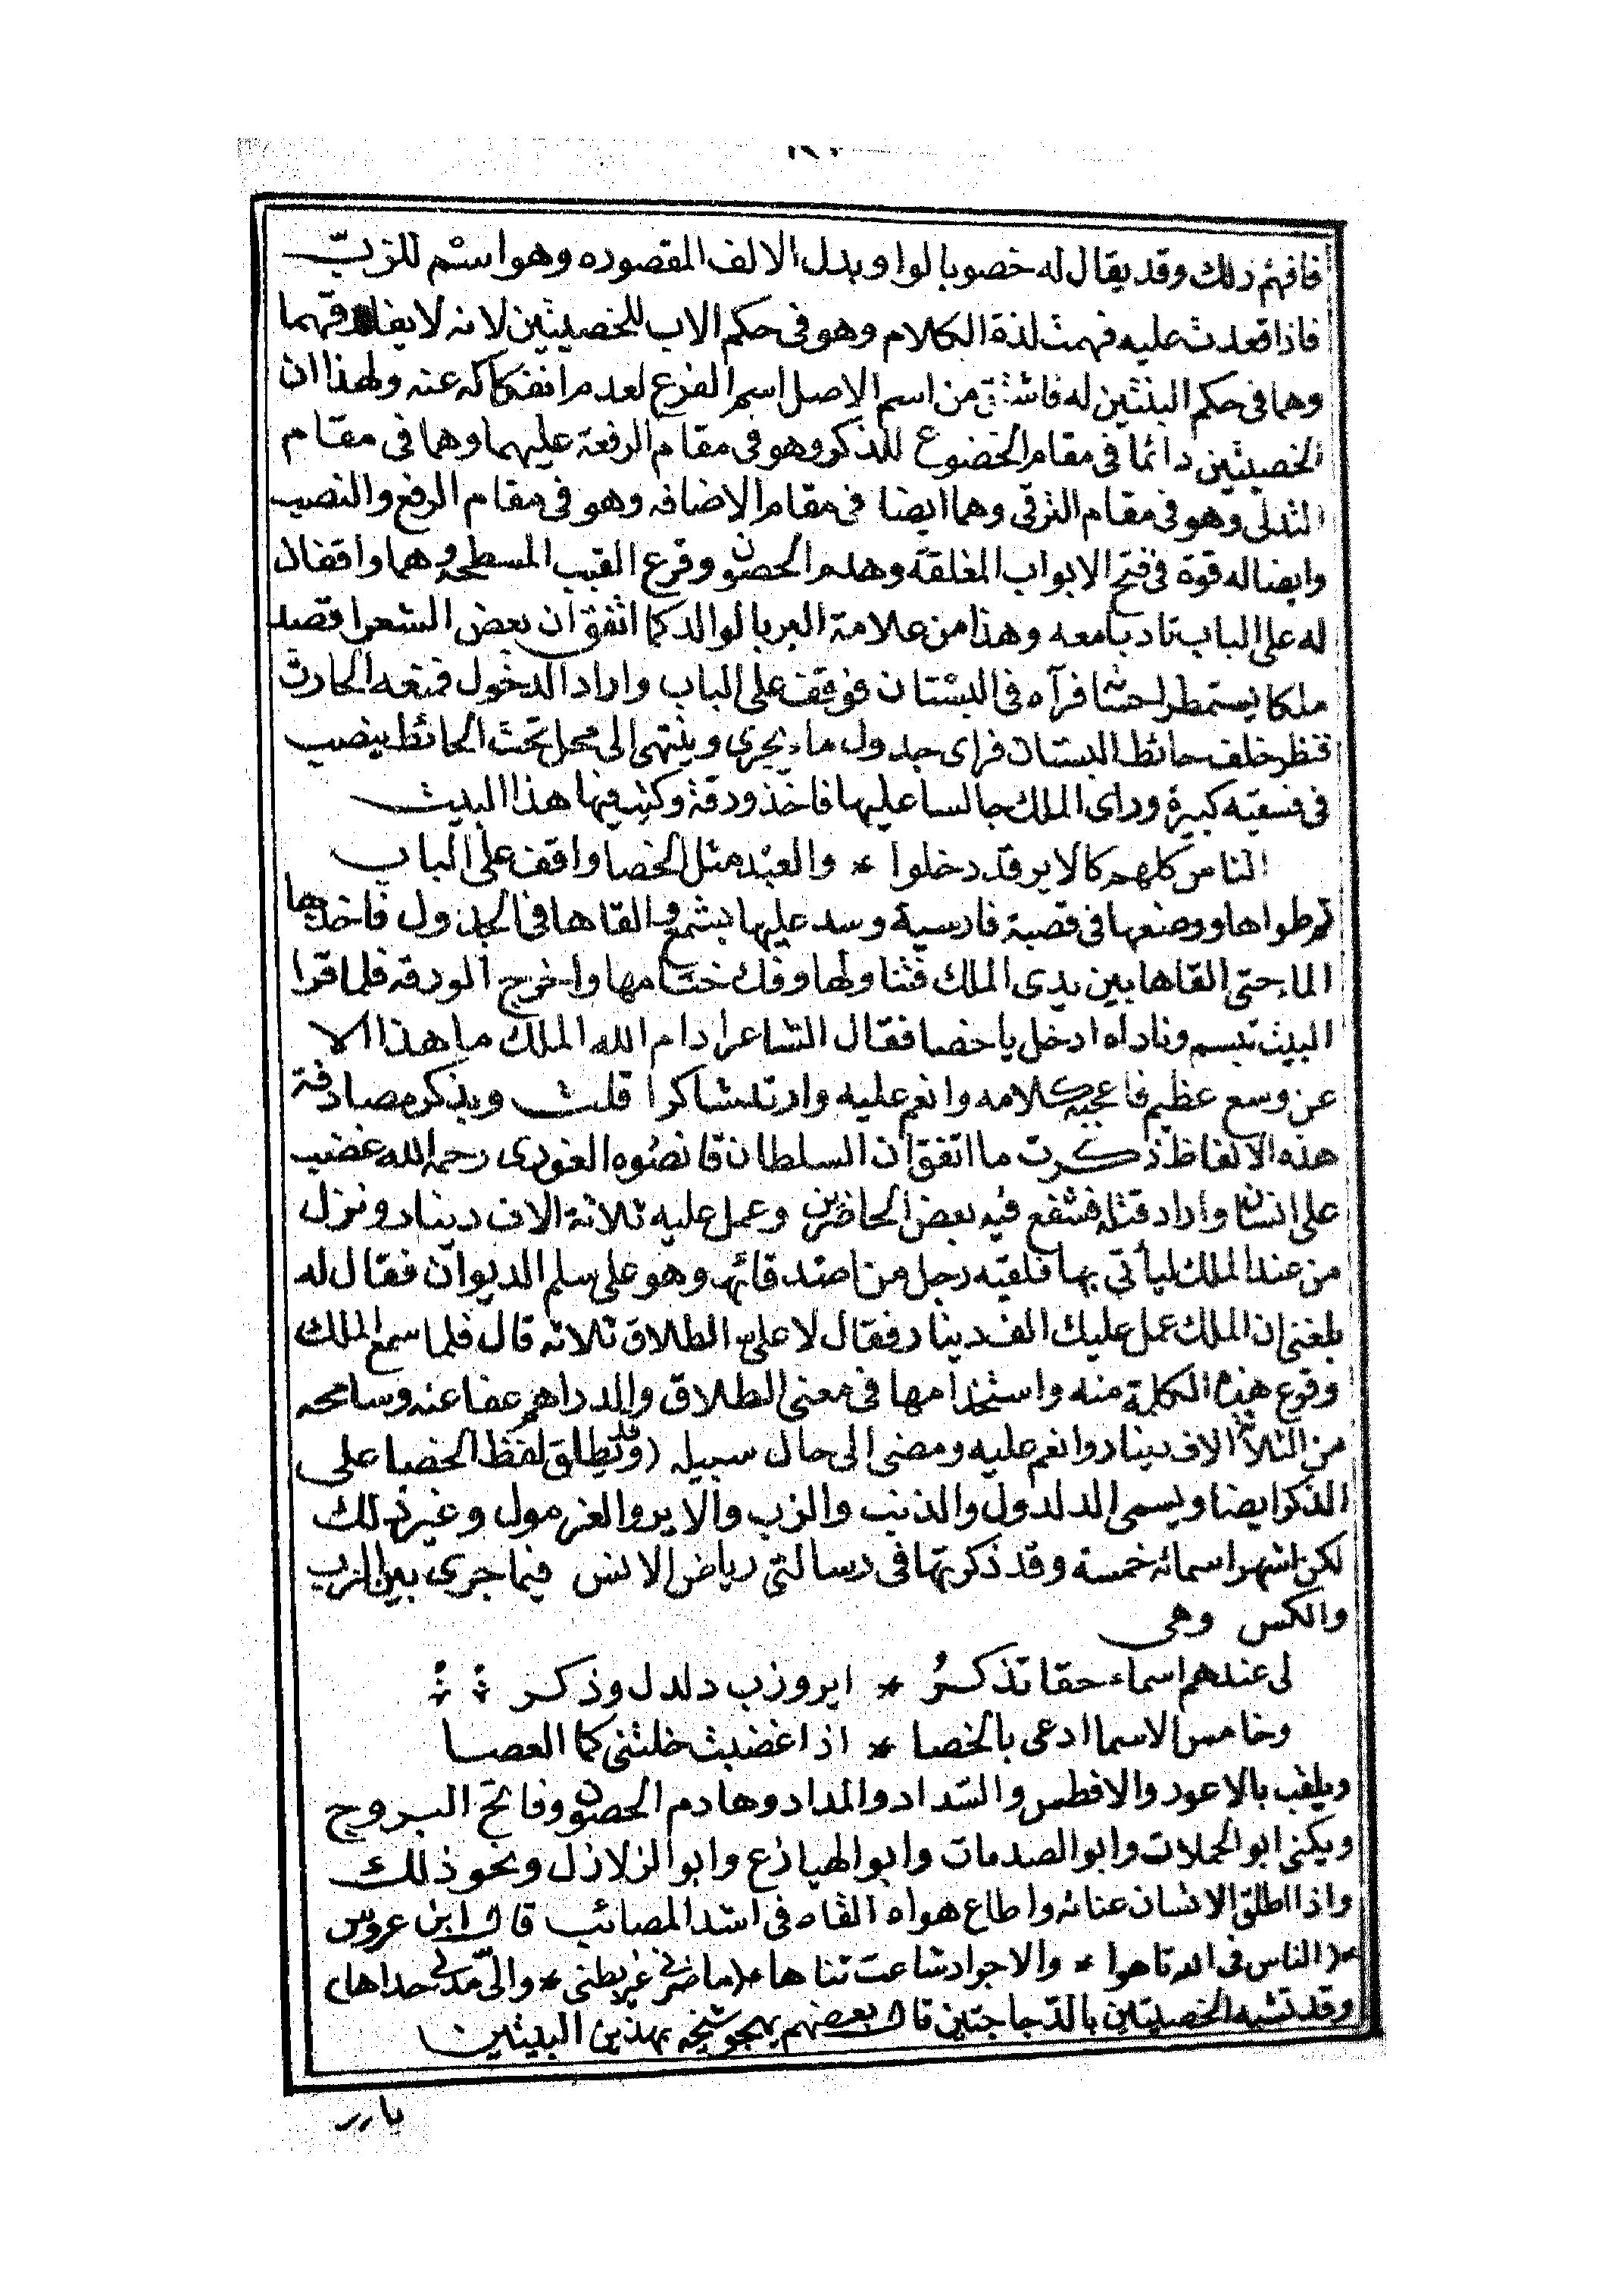 فافهم ذلك وقد يقال له خصو بالواو بدل الالف المقصوره وهو اسم للزبّ
فاذا قعدت عليه فهمت لذة الكلام وهو فى حكم الاب للخصيتين لانه لا يفارقهما
وهما فى حكم البنتين له فاشتق من اسم الاصل اسم الفرع لعدم انفكاكه عنه ولهذا ان
الخصيتين دائما فى مقام الخضوع للذكر وهو فى مقام الرفعة عليهما وهما فى مقام
التدلى وهو فى مقام الترقى وهما ايضا فى مقام الاضافه وهو فى مقام الرفع والنصب
وايضا له قوة فى فتح الابواب المغلقة وهدم الحصون وقرع القبب المسطحه وهما واقفان
له على الباب تادبا معه وهذا من علامة البر بالوالد كما اتفق ان بعض الشعرا قصد
ملكا يستمطر احسانه فرآه فى البستان فوقف على الباب واراد الدخول فمنعه الحارث
فنظر خلف حائط البستان فراى جدول ماء يجرى وينتهى الى محل تحت الحائط ينصب
فى فسقيه كبيرة وراى الملك جالسا عليها فاخذ ورقة وكتب فيها هذا البيت
الناس كلهم كالاير قد دخلوا * والعبد مثل الخصا واقف على الباب
ثم طواها ووضعها فى قصبة فارسية وسد عليها بشمع والقاها فى الجدول فاخذها
الماء حتى القاها بين يدى الملك فتناولها وفك ختامها واخرج الورقه فلما قرا
البيت تبسم وناداه ادخل يا خصا فقال الشاعر ادام الله الملك ما هذا الا
عن وسع عظيم فاعجبه كلامه وانعم عليه وارتد شاكرا قلت وبذكر مصادفة
هذه الالفاظ ذكرت ما اتفق ان السلطان قانصوه الغورى رحمه الله غضب
على انسان واراد قتله فشفع فيه بعض الحاضرين وعمل عليه ثلاثة الاف دينار ونزل
من عند الملك ليأتى بها فلقيه رجل من اصدقائه وهو على سلم الديوان فقال له
بلغنى ان الملك عمل عليك الف دينار فقال لا علىّ الطلاق ثلاثه قال فلما سمع الملك
وقوع هذه الكلمة منه واستخدامها فى معنى الطلاق والدراهم عفا عنه وسامحه
من الثلاثة الاف دينار وانعم عليه ومضى الى حال سبيله (وقد تطلق لفظ الخصا على
الذكر ايضا ويسمى الدلدول والذنب والزب والاير والغرمول وغير ذلك
لكن اشهر اسمائه خمسة وقد ذكرتها فى رسالتى رياض الانس فيما جرى بين الزب
والكس وهى
لى عندهم اسماء حقا تذكرُ * اير وزب دلدل وذكر
وخامس الاسما ادعى بالخصا * اذا غضبت خلتنى كما العصا
ويلقب بالاعور والافطس والسّداد والمداد وهادم الحصون وفاتح البروج
ويكنى ابو الحملات وابو الصدمات وابو الهيازع وابو الزلازل ونحو ذلك
واذا اطلق الانسان عنانه واطاع هواه القاه فى اشد المصائب قال ابن عروس
*(الناس فى الله تاهوا * والاجواد شاعت تناها *(ما ضرنى غير بطنى * والّى مدلى حداها)
وقد تشبه الخصيتين بالدّجاجتين قال بعضهم يهجو شيخه بهذين البيتين
يارر